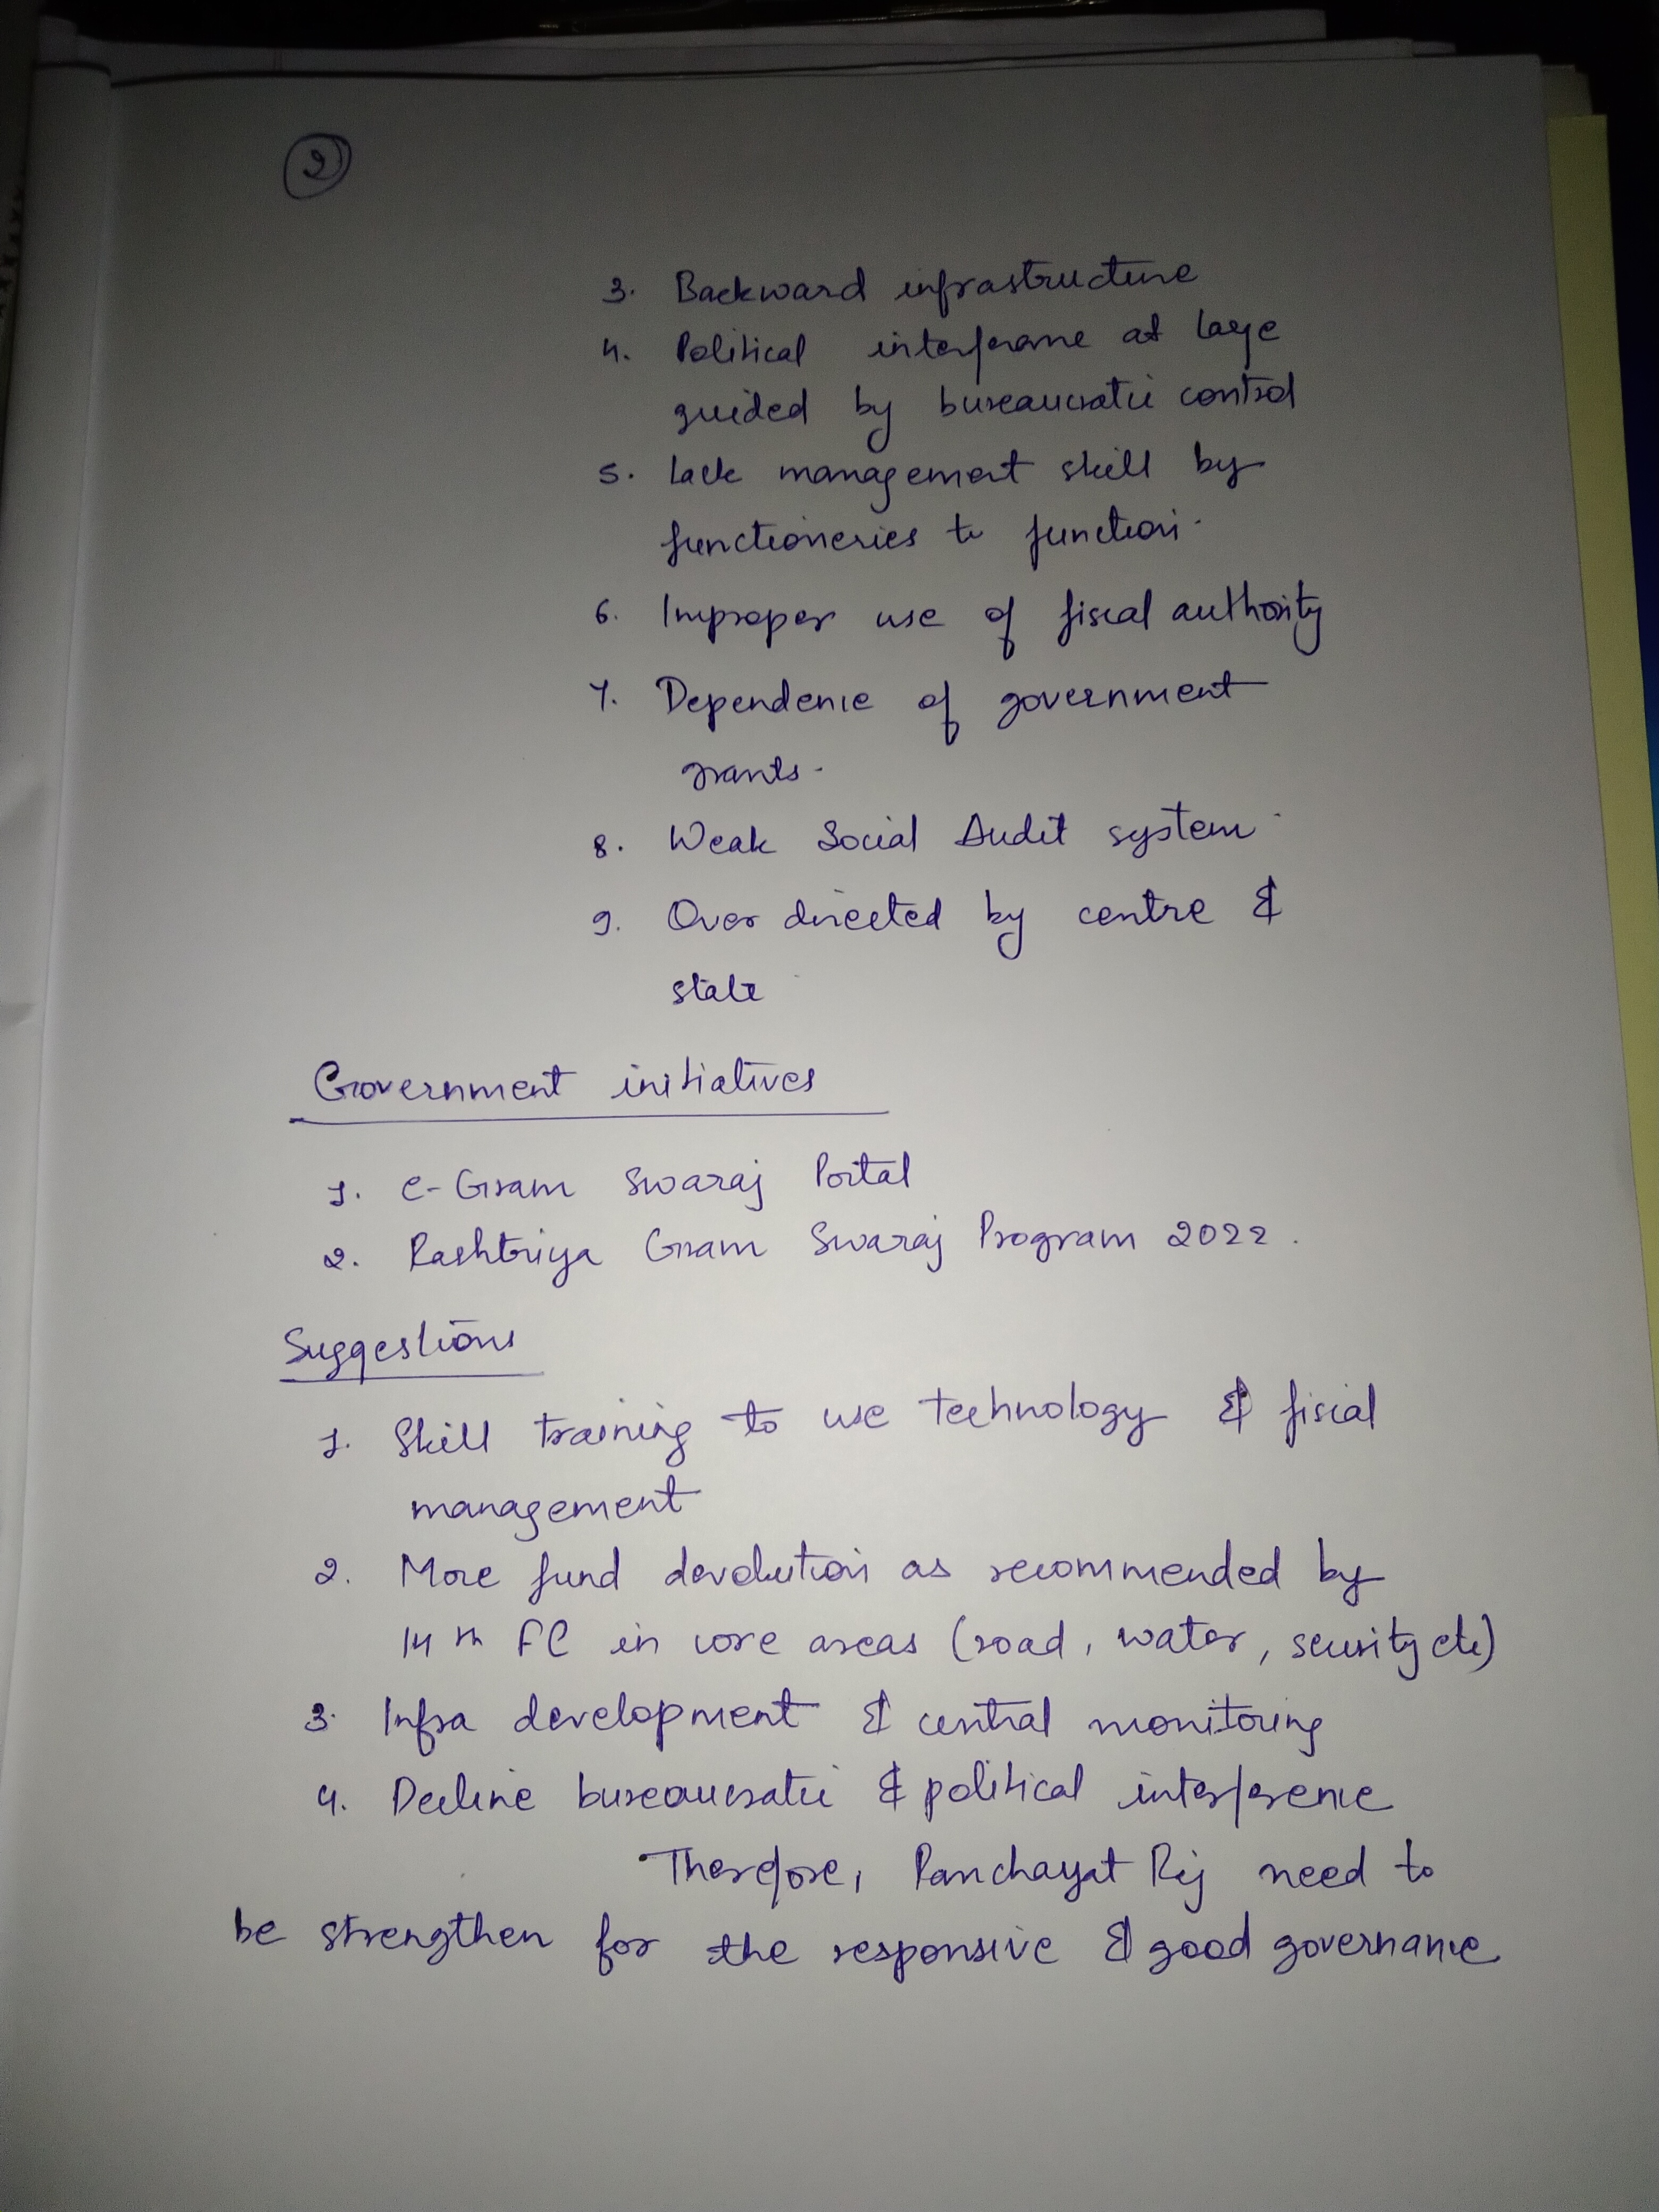 2
3. Backward infrastructure
4. Political interferance at large
guided by bureaucratic control
5. Lack management skill by
functioneries to function.
6. Improper use of fiscal authority
7. Dependence of government
grants.
8. Weak Social Audit system.
9. Over directed by centre &
state
Government initiatives
1. e-Gram Swaraj Portal
2. Rashtriya Gram Swaraj Program 2022.
Suggestions
1. Skill training to use technology & fiscal
management
2. More fund devolution as recommended by
14th FC in core areas (road, water, security etc)
3. Infra development & central monitoring
4. Decline bureaucratic & political interference
Therefore, Panchayat Raj need to
be strengthen for the responsive & good governance